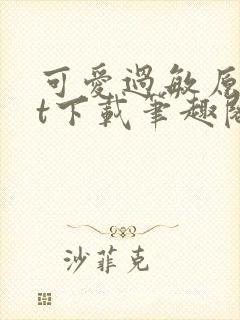 可愛過敏原
t下載筆趣閣
沙菲克